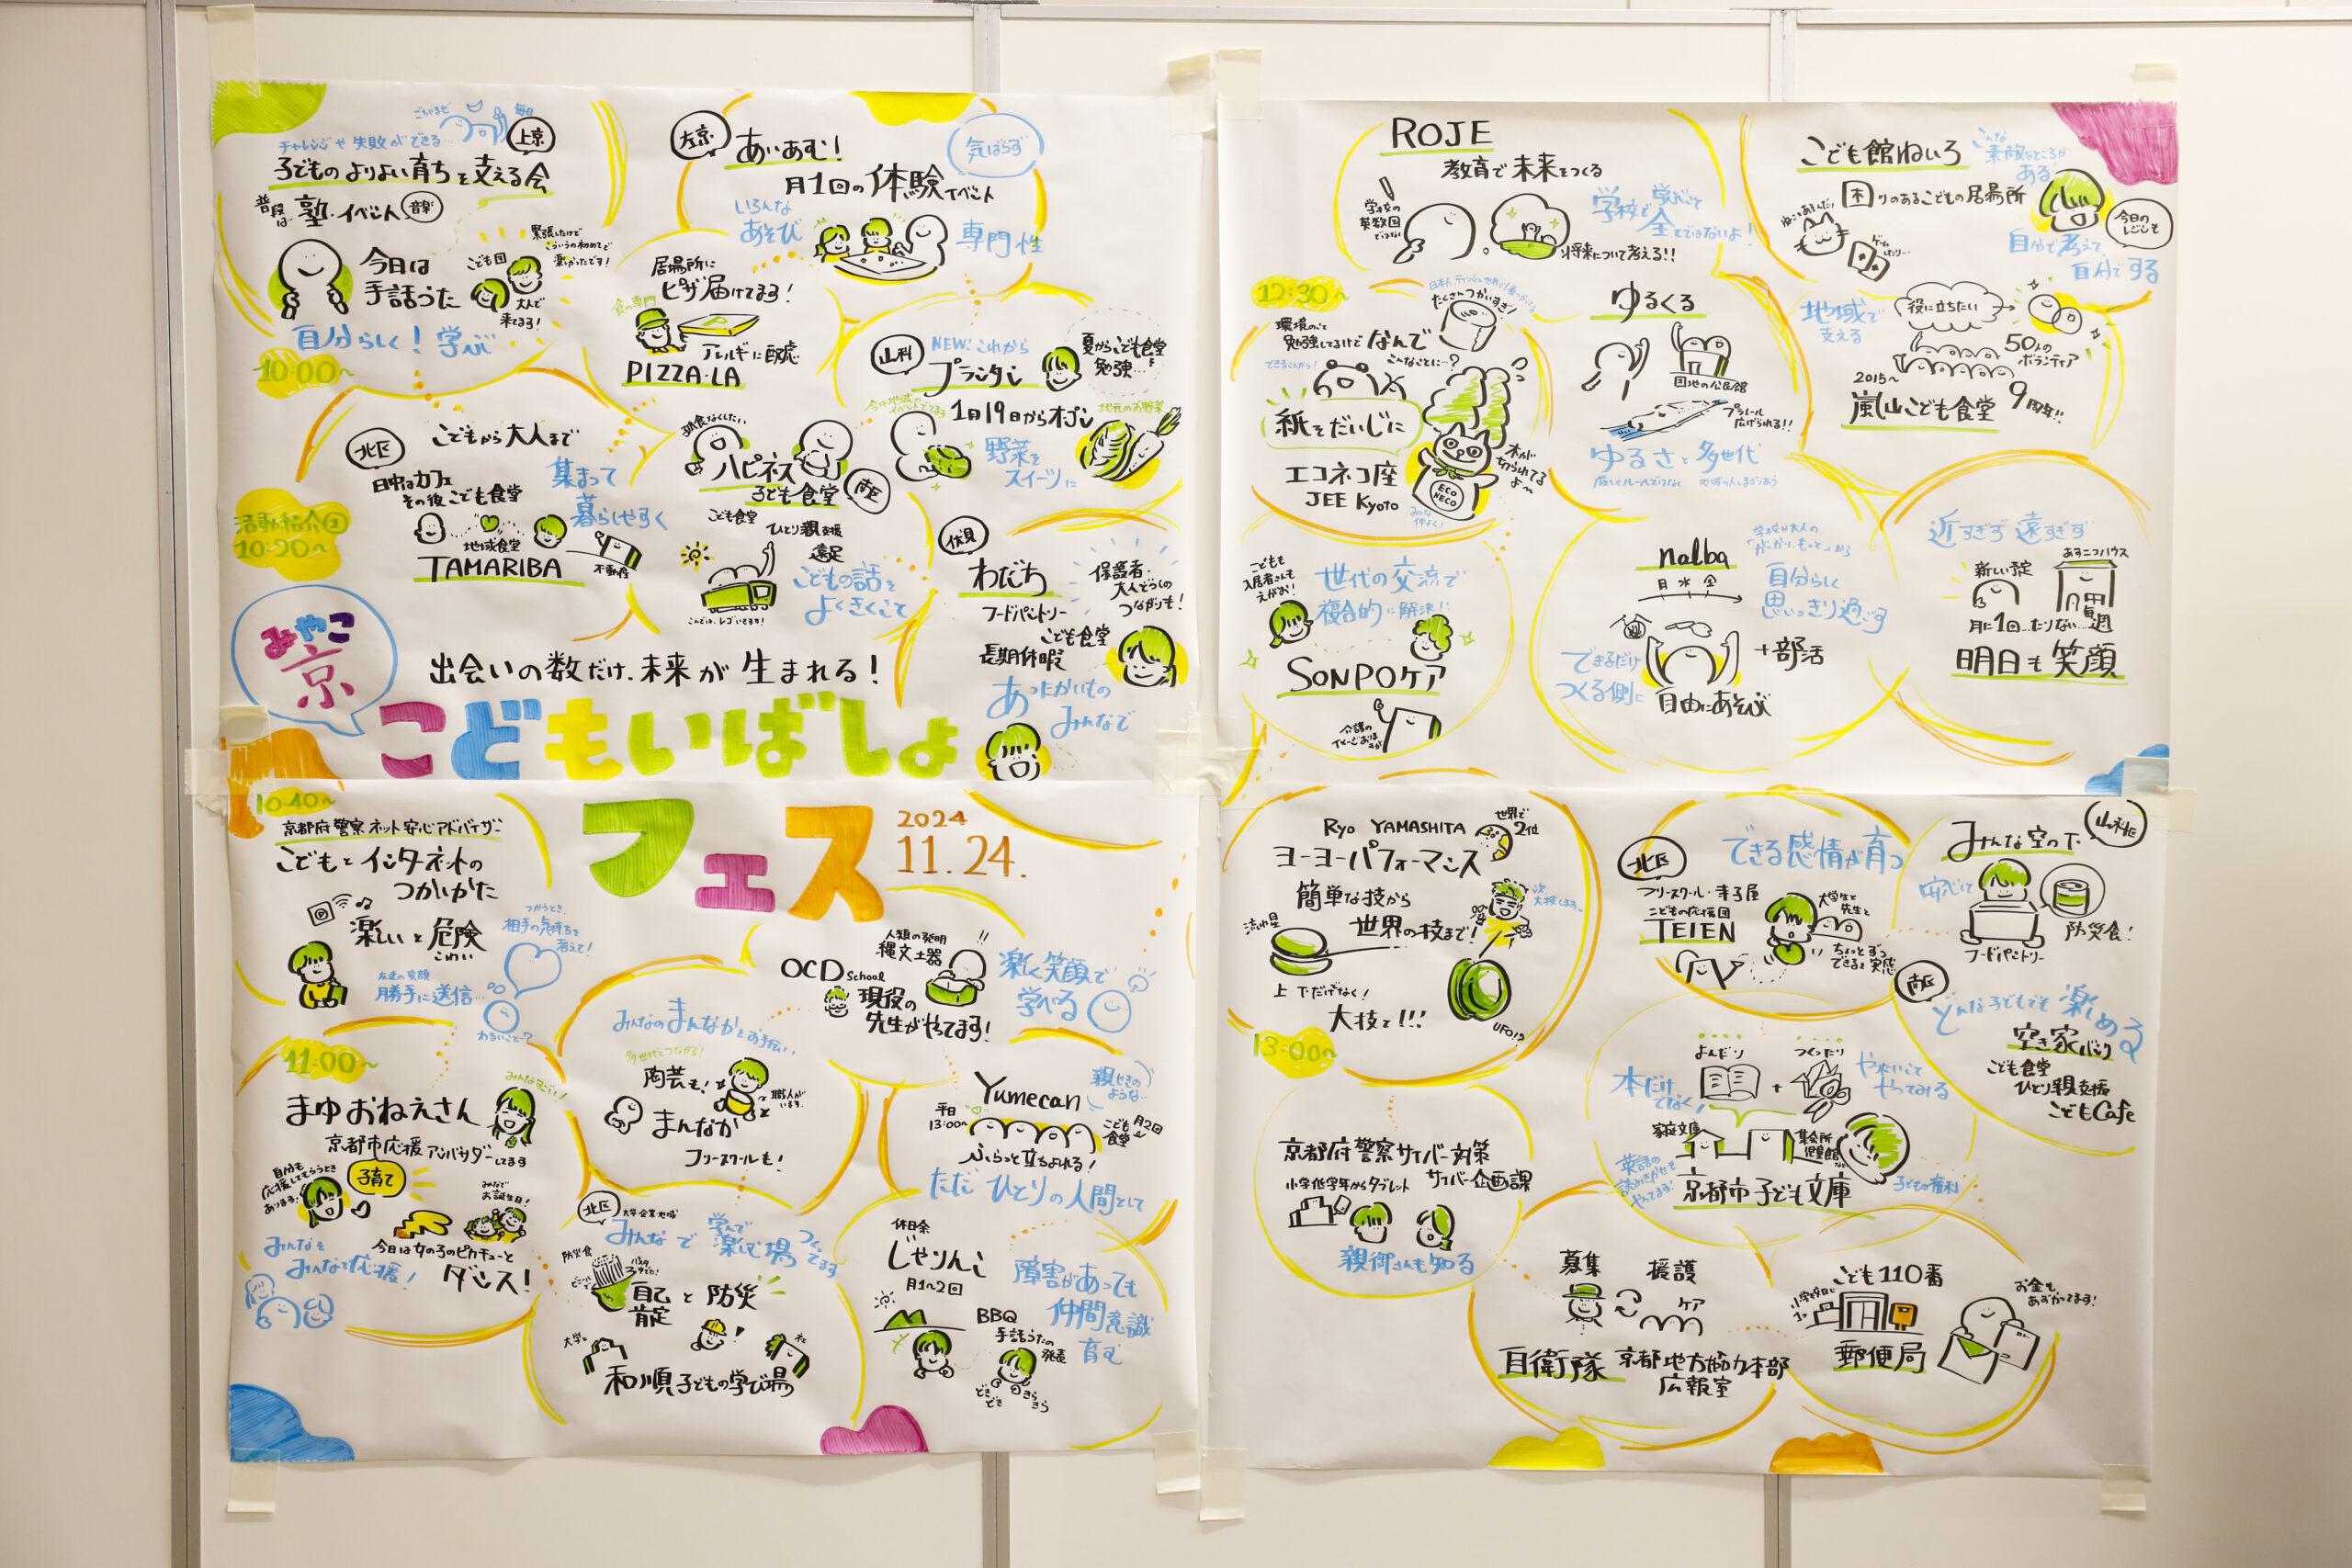 チャレンジや失敗ができる
毎日
上京
子どものよりよい育ちを支える会
普段は 塾・イベント 音楽
今日は
手話うた
こども園
緊張したけど
こういうの初めてで
楽しかったです!
大人で
来てます!
自分らしく!学ぶ
10:00~
左京
あいあむ!
月1回の体験イベント
気ばらず
いろんな
あそび
専門性
居場所に
ピザ届けてます!
食の専門
アレルギーに配慮
PIZZA-LA
山科
NEW! これから
プランタン
夏からこども食堂を
勉強…
1月19日からオープン
地元のお野菜
野菜を
スイーツに
北区
こどもから大人まで
日中はカフェ
その後こども食堂
集まって
暮らしやすく
地域食堂
不動産
TAMARIBA
活動紹介②
10:20~
孤食なくしたい
ハピネス
子ども食堂
南区
こども食堂
ひとり親支援
遠足
こどもの話を
よくきくこと
伏見
わだち
フードパントリー
こども食堂
長期休暇
保護者・
大人どうしの
つながりも!
あったかいもの
みんなで
みやこ
京
出会いの数だけ、未来が生まれる!
こどもいばしょ
フェス
2024
11.24.
10:40~
京都府警察ネット安心アドバイザー
こどもとインターネットの
つかいかた
楽しいと危険
こわい
つかうとき、
相手の気持ちを
考えて!
友達の変顔
勝手に送信…
わるいこと…?
11:00~
みんなすごい!
まゆおねえさん
京都市応援アンバサダーしてます
自分も
応援してもらうとき
あります!
子育て
みんなで
お誕生日!
今日は女の子のピカチューと
ダンス!
みんなを
みんなで応援!
みんなのまんなかをお手伝い
多世代とつながる!
陶芸も!
職人が
います。
まんなか
フリースクールも!
OCD School
人類の発明
縄文土器
現役の
先生がやってます!
楽しく笑顔で
学べる
Yumecan
親せきの
ような…
平日
13:00~
こども食堂 月2回
ふらっと立ちよれる!
ただひとりの人間として
北区
大学 企業 地域
みんなで 学んで
楽しむ場 つくってます
防災食
自己
肯定 と 防災
大学
社
和順子どもの学び場
休日余
じゃりんこ
月1~2回
BBQ
手話うたの
発表
どきどき
きらきら
障害があっても
仲間意識
育む
ROJE
教育で未来をつくる
学校の
英数国
ではない
学校で学べること
全てではないよ!
将来について考える!!
こども館ねいろ
こんな
素敵なところが
ある
困りのあるこどもの居場所
ゲーム
したり…
今日の
しごとも
自分で考えて、
自分でする
12:30~
環境のこと
勉強してるけど なんで
こんなことに…?
たくさんつかいすぎ!
できることから!
紙をだいじに
エコネコ座
JEE Kyoto
ECO
NECO
木が
切られてるよ~
みんな
仲よく!
ゆるくる
団地の公民館
プラレール
広げられる!!
ゆるさと多世代
厳しくルールだけでなく
地域の人もまざりあう
地域で
支える
役に立ちたい
50人の
ボランティア
2015~
嵐山こども食堂 9周年!!
こどもも
入居者さんも
えがお!
世代の交流で
複合的に解決!!
SONPOケア
介護の
イメージあるけど
nalba
月 水 金
学校や大人の
「がっかり、もっと」から
自分らしく
思いっきり過ごす
できるだけ
つくる側に
+部活
自由にあそぶ
近すぎず遠すぎず
新しい予定
あすニコハウス
月に1回…たりない…毎週
明日も笑顔
Ryo YAMASHITA
世界で
2位
ヨーヨーパフォーマンス
簡単な技から
世界の技まで!
流れ星
上・下だけでなく!
大技も!!!
UFO!?
13:00~
北区
できる感情が育つ
フリースクール・寺子屋
こどもの応援団
TEIEN
大学生と
先生と
ちょっとずつ
できると実感
山科区
みんな空の下
安心して
防災食!
フードパントリー
南区
どんな子どもでも楽しめる
空き家バンク
こども食堂
ひとり親支援
こどもCafe
よんだり
+
つくったり
本だけ
でなく!
やりたいこと
やってみる
家庭文庫
集会所
児童館など
英語の
読みきかせも
やってます!
京都市子ども文庫
子どもの権利
京都府警察サイバー対策
サイバー企画課
小学低学年からタブレット
親御さんも知る
募集
援護
ケア
自衛隊 京都地方協力本部
広報室
こども110番
お金も、
あずかってます!
郵便局